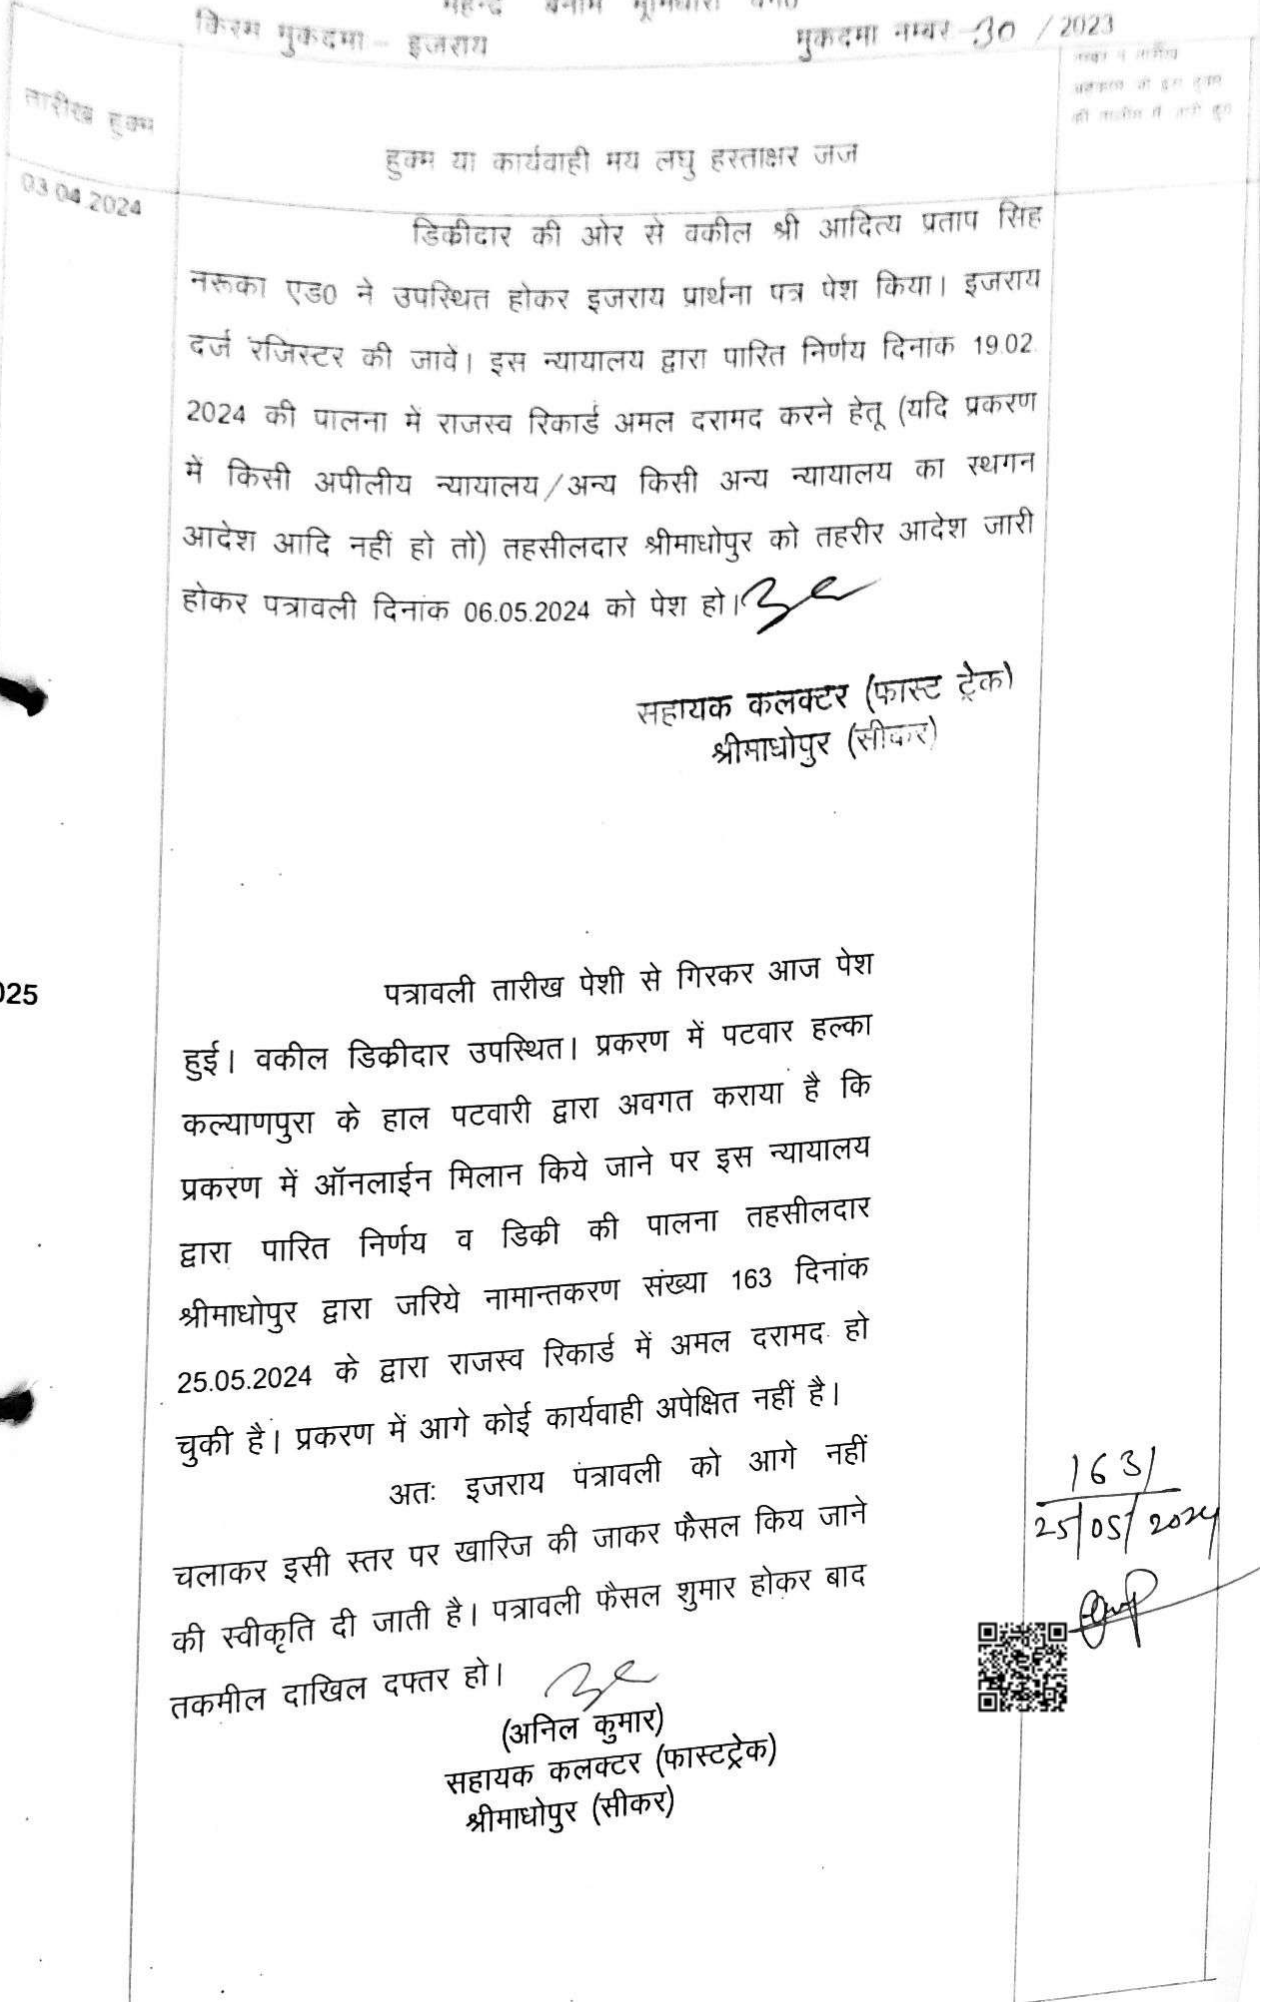 बनाम
किस्म मुकदमा - इजराय
मुकदमा नम्बर 30 / 2023
तारीख हुक्म
हुक्म या कार्यवाही मय लघु हस्ताक्षर जज
03.04.2024
डिकीदार की ओर से वकील श्री आदित्य प्रताप सिंह
नरूका एड0 ने उपस्थित होकर इजराय प्रार्थना पत्र पेश किया। इजराय
दर्ज रजिस्टर की जावे। इस न्यायालय द्वारा पारित निर्णय दिनांक 19.02.
2024 की पालना में राजस्व रिकार्ड अमल दरामद करने हेतू (यदि प्रकरण
में किसी अपीलीय न्यायालय/अन्य किसी अन्य न्यायालय का स्थगन
आदेश आदि नहीं हो तो) तहसीलदार श्रीमाधोपुर को तहरीर आदेश जारी
होकर पत्रावली दिनांक 06.05.2024 को पेश हो।
सहायक कलक्टर (फास्ट ट्रेक)
श्रीमाधोपुर (सीकर)
025
पत्रावली तारीख पेशी से गिरकर आज पेश
हुई। वकील डिकीदार उपस्थित। प्रकरण में पटवार हल्का
कल्याणपुरा के हाल पटवारी द्वारा अवगत कराया है कि
प्रकरण में ऑनलाईन मिलान किये जाने पर इस न्यायालय
द्वारा पारित निर्णय व डिकी की पालना तहसीलदार
श्रीमाधोपुर द्वारा जरिये नामान्तकरण संख्या 163 दिनांक
25.05.2024 के द्वारा राजस्व रिकार्ड में अमल दरामद हो
चुकी है। प्रकरण में आगे कोई कार्यवाही अपेक्षित नहीं है।
अतः इजराय पत्रावली को आगे नहीं
चलाकर इसी स्तर पर खारिज की जाकर फैसल किय जाने
की स्वीकृति दी जाती है। पत्रावली फैसल शुमार होकर बाद
तकमील दाखिल दफ्तर हो।
(अनिल कुमार)
सहायक कलक्टर (फास्टट्रेक)
श्रीमाधोपुर (सीकर)
163/
25/05/2024